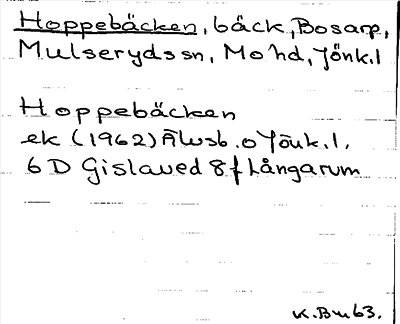 Hoppebäcken, bäck, Bosarp,
Mulserydssn, Mohd, Jönk.l
Hoppebäcken
ek (1962) Älvsb. o Jönk.l.
6 D Gislaved 8f Långarum
K.Bm 63.